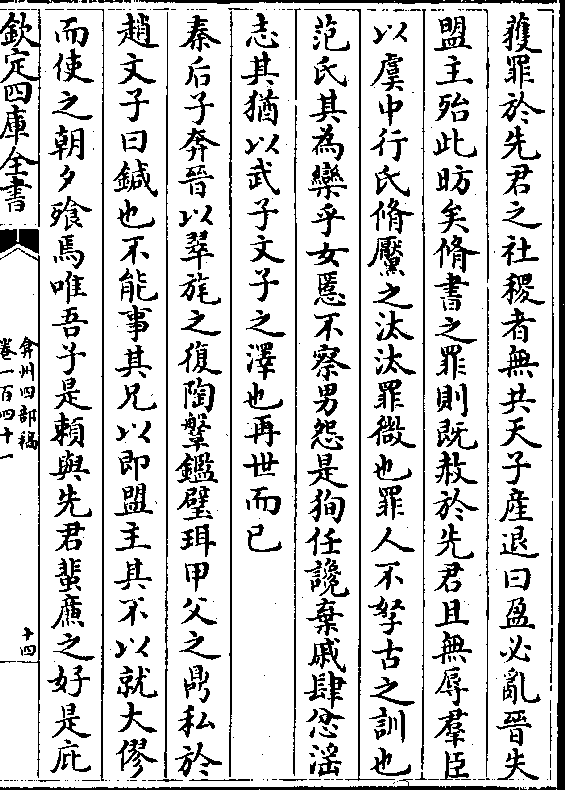 蒦罪於先君之社稷者無共天子產退曰盈必亂晉失
盟主殆此昉矣脩書之罪則既赦於先君且無辱羣臣
以虞中行氏脩黶之汰汰罪微也罪人不孥古之訓也
范氏其為欒乎女慝不察男怨是狥任讒棄戚肆忿滛
志其猶以武子文子之澤也再世而已
秦后子奔晉以翠旄之復陶鞶鑑璧珥甲父之鼎私於
趙文子曰鍼也不能事其兄以即盟主其不以就大僇
而使之朝夕飱焉唯吾子是賴與先君蜚廉之好是庇
欽定四庫全書
弇州四部稿
卷一百四十一
十四